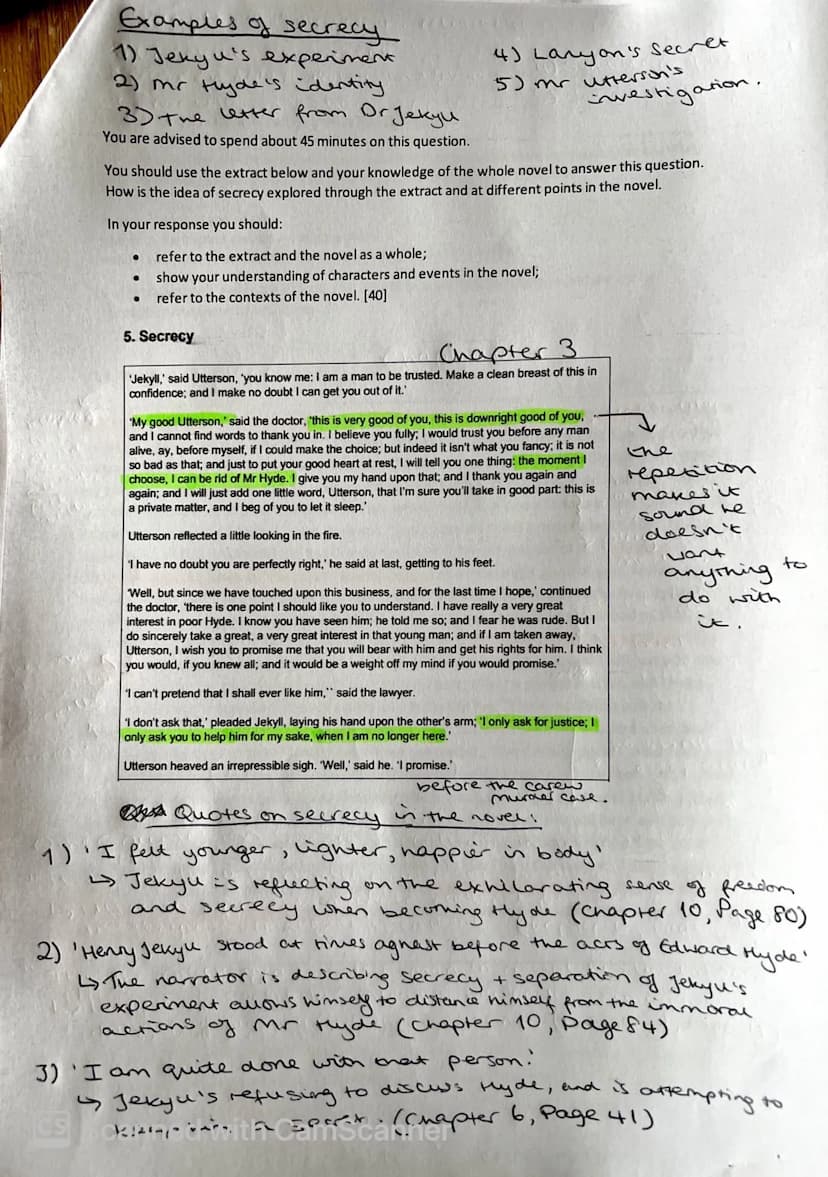 Examples of secrecy
1) Jekyll's experiment
2) Mr Hyde's identity
3) The letter from Dr Jekyll
4) Lanyon's Secret
5) Mr Utterson's
investigation.
You are advised to spend about 45 minutes on this question.
You should use the extract below and your knowledge of the whole novel to answer this question.
How is the idea of secrecy explored through the extract and at different points in the novel.
In your response you should:
• refer to the extract and the novel as a whole;
• show your understanding of characters and events in the novel;
• refer to the contexts of the novel. [40]
5. Secrecy
Chapter 3
'Jekyll,' said Utterson, 'you know me: I am a man to be trusted. Make a clean breast of this in
confidence; and I make no doubt I can get you out of it.'
'My good Utterson,' said the doctor, 'this is very good of you, this is downright good of you,
and I cannot find words to thank you in. I believe you fully; I would trust you before any man
alive, ay, before myself, if I could make the choice; but indeed it isn't what you fancy; it is not
so bad as that; and just to put your good heart at rest, I will tell you one thing: the moment I
choose, I can be rid of Mr Hyde. I give you my hand upon that; and I thank you again and
again; and I will just add one little word, Utterson, that I'm sure you'll take in good part: this is
a private matter, and I beg of you to let it sleep.'
Utterson reflected a little looking in the fire.
'I have no doubt you are perfectly right,' he said at last, getting to his feet.
'Well, but since we have touched upon this business, and for the last time I hope,' continued
the doctor, 'there is one point I should like you to understand. I have really a very great
interest in poor Hyde. I know you have seen him; he told me so; and I fear he was rude. But I
do sincerely take a great, a very great interest in that young man; and if I am taken away,
Utterson, I wish you to promise me that you will bear with him and get his rights for him. I think
you would, if you knew all; and it would be a weight off my mind if you would promise.'
'I can't pretend that I shall ever like him,'' said the lawyer.
'I don't ask that,' pleaded Jekyll, laying his hand upon the other's arm; 'I only ask for justice; I
only ask you to help him for my sake, when I am no longer here.'
Utterson heaved an irrepressible sigh. 'Well,' said he. 'I promise.'
the
repetition
makes it
sound he
doesn't
want
anything to
do with
it.
before the carew
murder case.
Quotes on secrecy in the novel:
1) 'I felt younger, lighter, happier in body'
↳ Jekyll is reflecting on the exhilarating sense of freedom
and secrecy when becoming Hyde (Chapter 10, Page 80)
2) 'Henry Jekyll stood at times aghast before the acts of Edward Hyde'
↳ The narrator is describing secrecy + separation of Jekyll's
experiment allows himself to distance himself from the immoral
actions of Mr Hyde (Chapter 10, Page 84)
3) 'I am quite done with that person.'
↳ Jekyll's refusing to discuss Hyde, and is attempting to
a (Chapter 6, Page 41)
CS Scanned with CamScanner